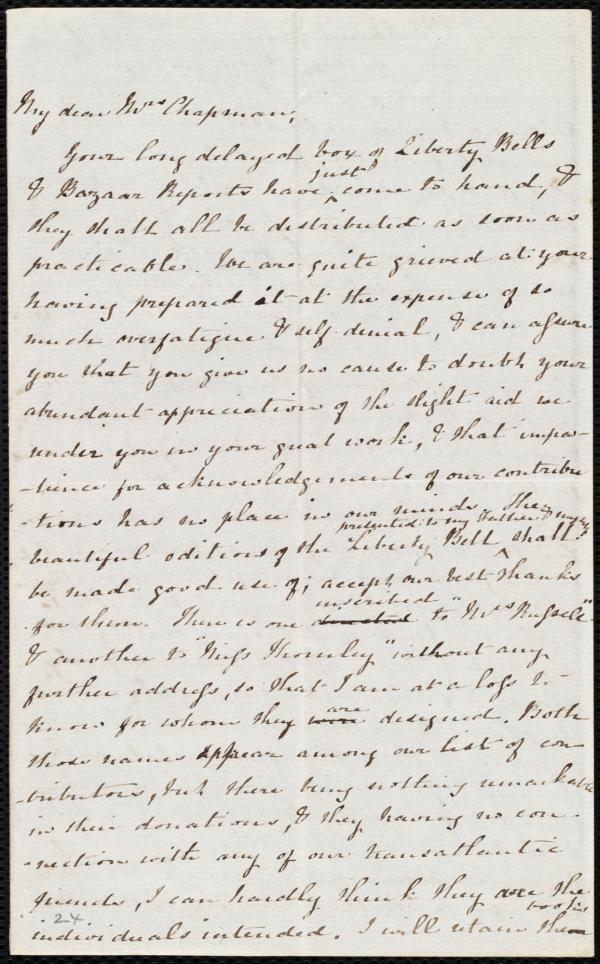 My dear Mrs Chapman,
Your long delayed box of Liberty Bells
just
& Bazaar Reports have ^ come to hand, &
they shall all be distributed as soon as
practicable. We are quite grieved at your
having prepared it at the expense of so
much overfatigue & self-denial, & can assure
you that you give us no cause to doubt your
abundant appreciation of the slight aid we
render you in your great work, & that impa-
-tience for acknowledgements of our contribu
-tions has no place in our minds. The
presented to my Father & myself
beautiful editions of the Liberty Bell ^ shall
be made good use of; accept our best thanks
inscribed
for them. There is one directed to "Mrs Russell"
& another to "Miss Thornley" without any
further address, so that I am at a loss to
are
know for whom they were designed. Both
those names appear among our list of con
-tributors, but there being nothing remarkable
in their donations, & they having no con-
-nection with any of our transatlantic
friends, I can hardly think they are the
books
individuals intended. I will retain the
24